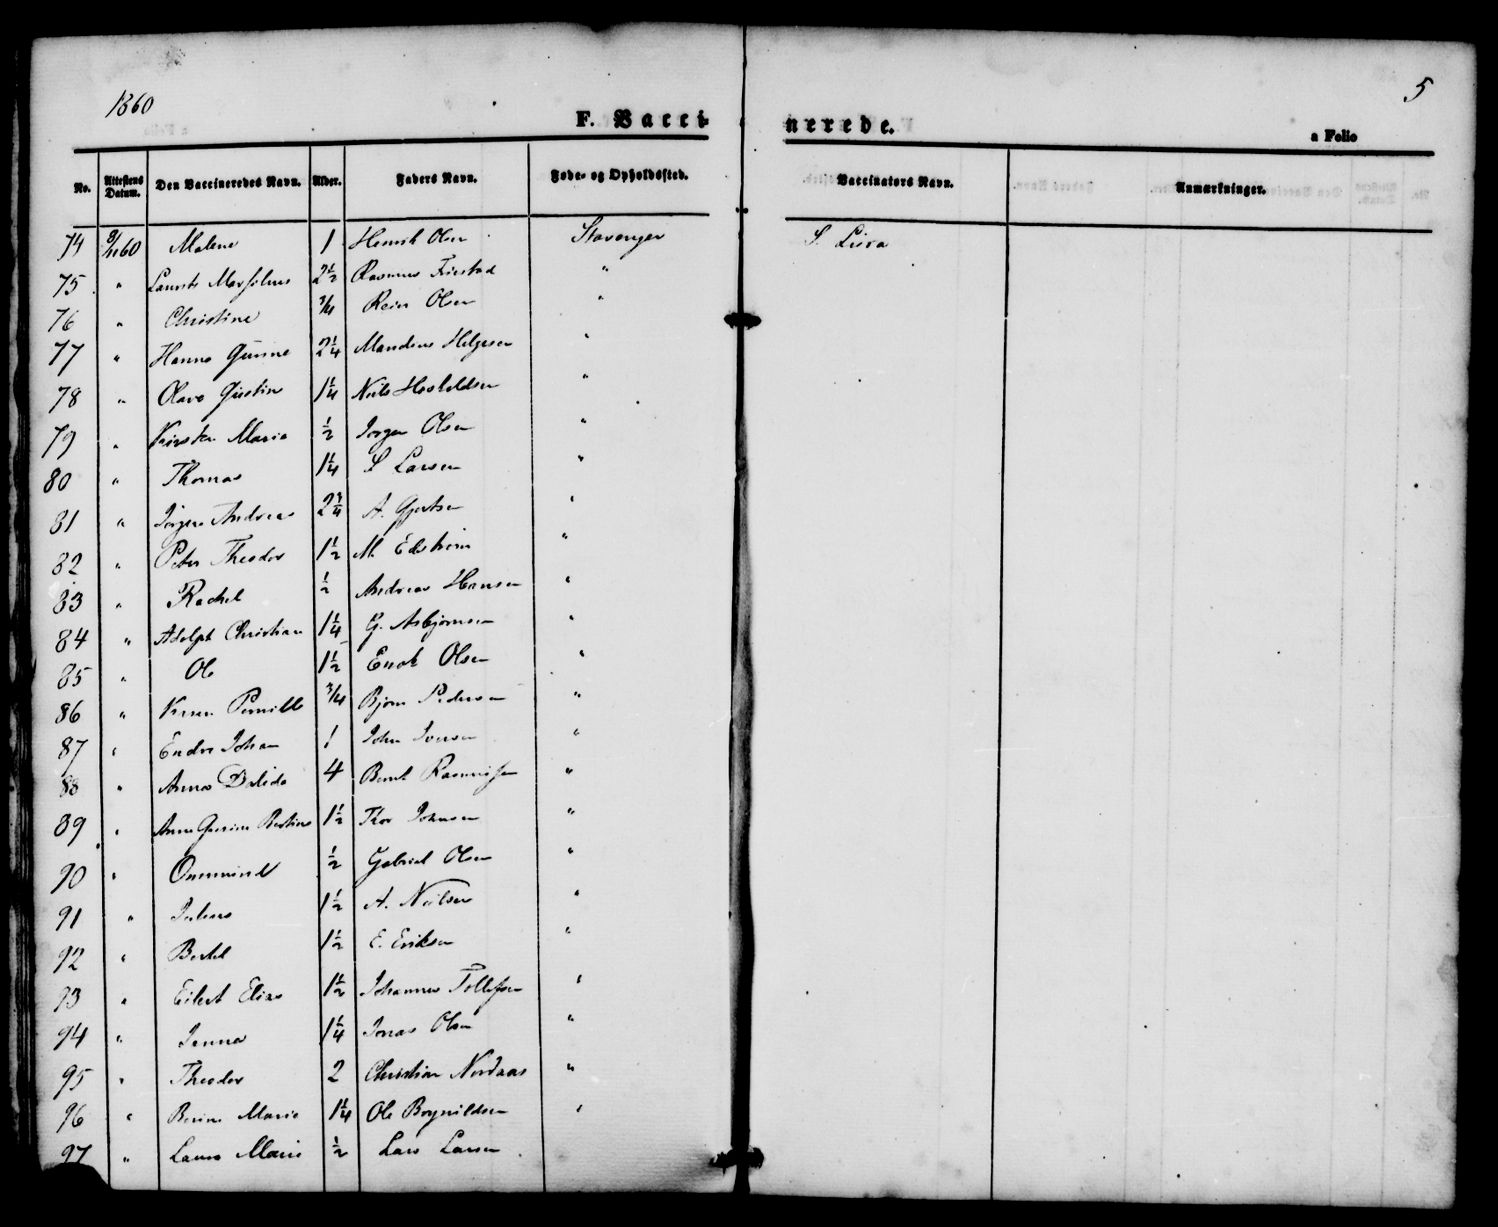 1860
5
F. Vaccinerede.
a Folio
No. Attestens Datum. Den Vaccineredes Navn. Alder. Faders Navn. Føde- og Opholdssted. Vaccinators Navn. Anmærkninger.
74 8/11 60 Malene 1 Henrik Olsen Stavanger S. Lura
75 " Laurits 2½ Rasmus "
76 " Christine 3/4 Reier Olsen "
77 " Hanna Gurine 2¼ Mandius Helgesen "
78 " Olava Gustin 1¼ Niels Hoskildsen "
79 " Kirsten Maria ½ Jørgen Olsen "
80 " Thomas 1¼ S Larsen "
81 " Jørgen Andreas 2¾ A. Gjertsen "
82 " Peter Theodor 1½ M. Edström "
83 " Rachel ½ Andreas Hansen "
84 " Adolph Christian 1¼ G. Asbjørnsen "
85 " Ole 1½ Enok Olsen "
86 " Karen Pernille 3/4 Bjørn Pedersen "
87 " Endre Johan 1 John Iversen "
88 " Anna Dalida 4 Bernt Rasmussen "
89 " Anne Gurine Bertine 1½ Thor Johnsen "
90 " Ommund ½ Gabriel Olsen "
91 " Julius 1½ A. Nielsen "
92 " Bertel 1½ E. Eriksen "
93 " Eilert Elias 1½ Johannes Tollefsen "
94 " Janna 1¼ Jonas Olsen "
95 " Theodor 2 Christian Nordaas "
96 " Berine Marie 1¼ Ole Bognildsen "
97 " Laura Marie ½ Lars Larsen